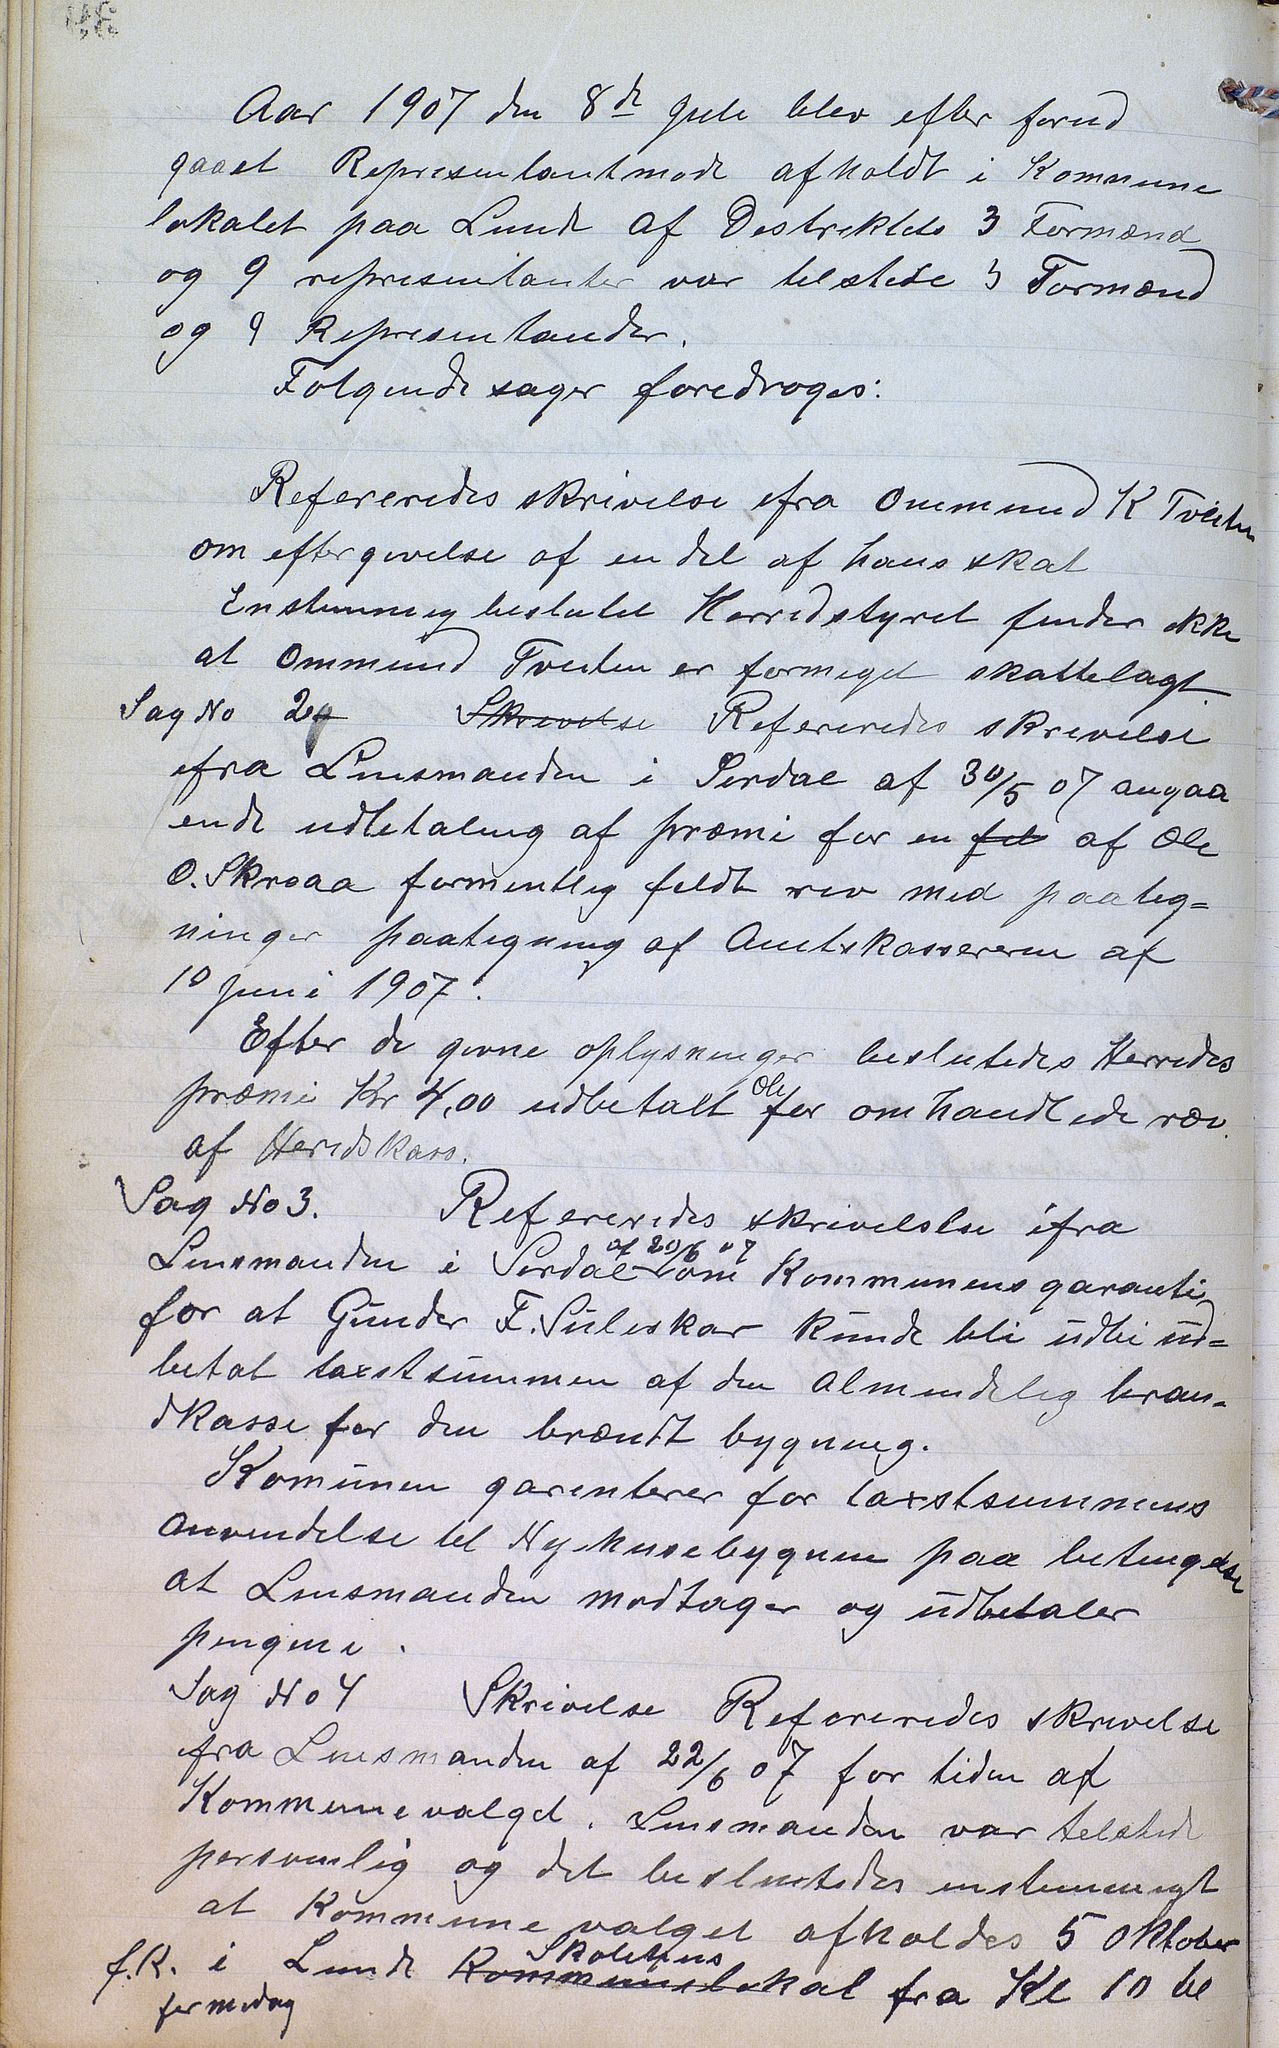 Aar 1907 den 8de Juli blev efter forud
gaaet Representantmøde afholdt i Kommune
lokalet paa Lunde af Destriktets 3 Formænd
og 9 representanter var telstede 3 Formænd
og 9 Representander.
Følgende sager foredroges:
Refereredes skrivelse ifra Ommund K Tveiten
om eftergivelse af en del af hans skat
Enstemmig beslutet Herredstyret finder ikke
at Ommund Tveiten er formeget skattelagt
Sag No 2 Skrivelse Refereredes skrivelse
ifra Lensmanden i Serdal af 30/5 07 angaa
ende udbetaling af præmi for en fel af Ole
O. Skreaa formentlig feldt rev med paateg=
ninger paategning af Amtskassereren af
10 juni 1907.
Efter de givne oplysninger beslutedes Herreds
præmi Kr 4,00 udbetalt Ole for omhandlede ræv
af Heredskass.
Sag No 3. Refereredes skrivelse ifra
Lensmanden i Serdal af 20/6 07 om Kommunens garanti
for at Gunder F. Suleskar kunde bli udbe ud=
betat taxstsummen af den Almendelig bran-
dkasse for den brændt bygning.
Komunen garenterer for taxstsummens
anvendelse til Ny husebygnin paa betingelse
at Lensmanden modtager og udbetaler
pengene.
Sag No 4 Skrivelse Refereredes skrivelse
ifra Lensmanden af 22/6 07 for tiden af
Kommunevalget. Lensmanden var telstede
personlig og det beslutedes enstemmigt
at Kommunevalget afholdes 5 Oktober
f.K. i Lunde Kommunelokal Skolehus fra Kl 10 be
formedag